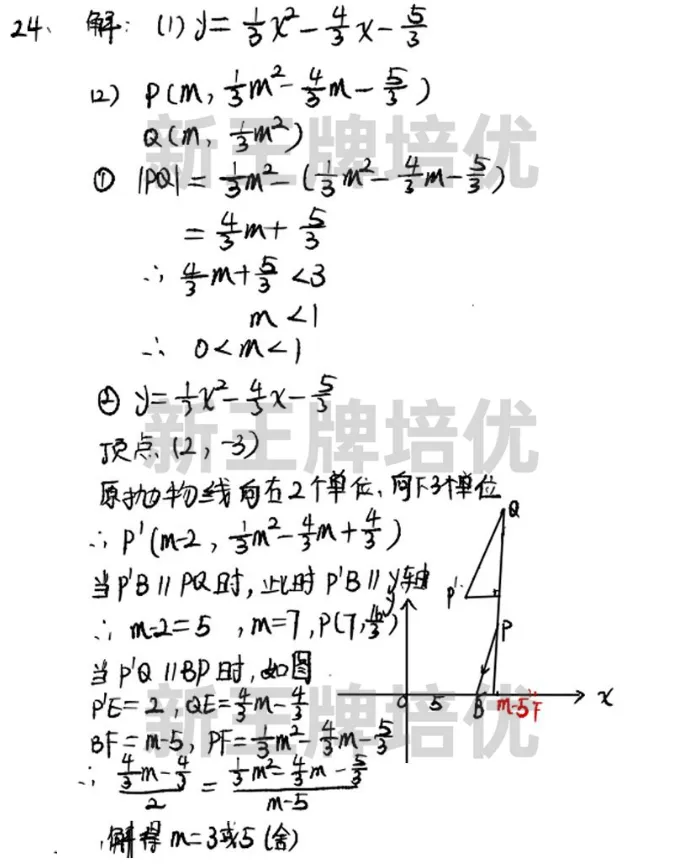 24、解：(1) y=1/3x²-4/3x-5/3
(2) P(m, 1/3m²-4/3m-5/3)
Q(m, 1/3m²)
① |PQ|=1/3m²-(1/3m²-4/3m-5/3)
=4/3m+5/3
∴ 4/3m+5/3<3
m<1
∴ 0<m<1
② y=1/3x²-4/3x-5/3
顶点(2, -3)
原抛物线向右2个单位, 向下3个单位
∴ P'(m-2, 1/3m²-4/3m+4/3)
当P'B∥PQ时, 此时P'B∥y轴
∴ m-2=5, m=7, P(7, 16/3)
当P'Q∥BP时, 如图
P'E=2, QE=4/3m-4/3
BF=m-5, PF=1/3m²-4/3m-5/3
∴ (4/3m-4/3)/2=(1/3m²-4/3m-5/3)/(m-5)
解得m=3或5(舍)
Q
P'
y
P
O 5 B m-5 F x
新王牌培优
新王牌培优
新王牌培优